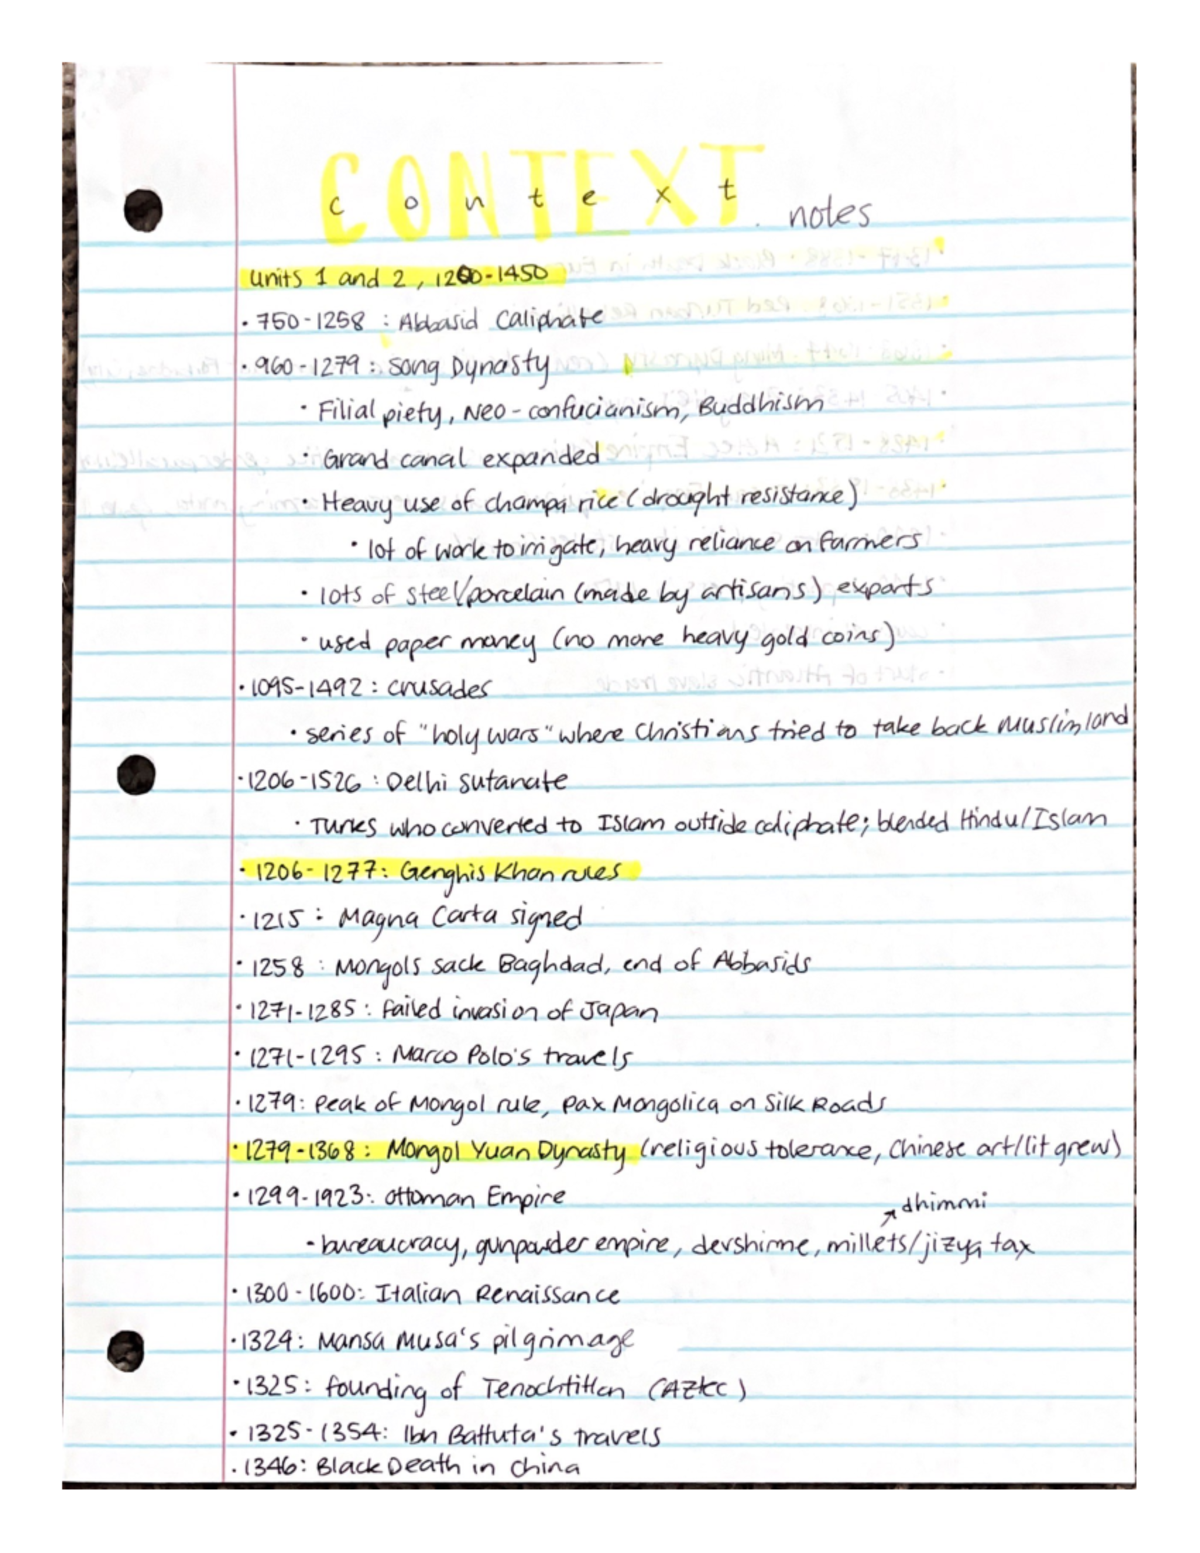 CONTEXT
context notes
Units 1 and 2, 1200-1450
· 750-1258 : Abbasid Caliphate
· 960-1279 : Song Dynasty
· Filial piety, Neo-confucianism, Buddhism
· Grand canal expanded
· Heavy use of champa rice (drought resistance)
· lot of work to irrigate, heavy reliance on farmers
· lots of steel/porcelain (made by artisans) exports
· used paper money (no more heavy gold coins)
· 1095-1492 : Crusades
· series of "holy wars" where Christians tried to take back Muslim land
· 1206-1526 : Delhi Sutanate
· Turks who converted to Islam outside caliphate; blended Hindu/Islam
· 1206-1277: Genghis Khan rules
· 1215 : Magna Carta signed
· 1258 : Mongols sack Baghdad, end of Abbasids
· 1271-1285 : Failed invasion of Japan
· 1271-1295 : Marco Polo's travels
· 1279: Peak of Mongol rule, Pax Mongolica on Silk Roads
· 1279-1368 : Mongol Yuan Dynasty (religious tolerance, Chinese art/lit grew)
· 1299-1923: Ottoman Empire
dhimmi
· bureaucracy, gunpowder empire, devshirme, millets/jizya tax
· 1300-1600: Italian Renaissance
· 1324: Mansa Musa's pilgrimage
· 1325: founding of Tenochtitlan (AZtec)
· 1325-1354: Ibn Battuta's travels
· 1346: Black Death in China